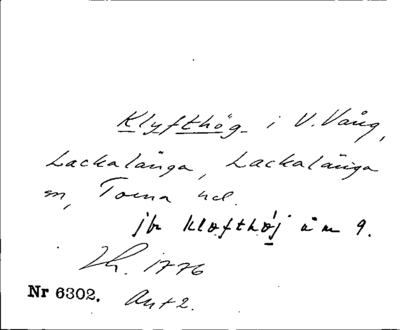 Klyfthög i V. Vång,
Lackalänga, Lackalänga
sn, Torna hd.
jfr kløfthøj åm 9.
Lh. 1776
Nr 6302. Akt 2.